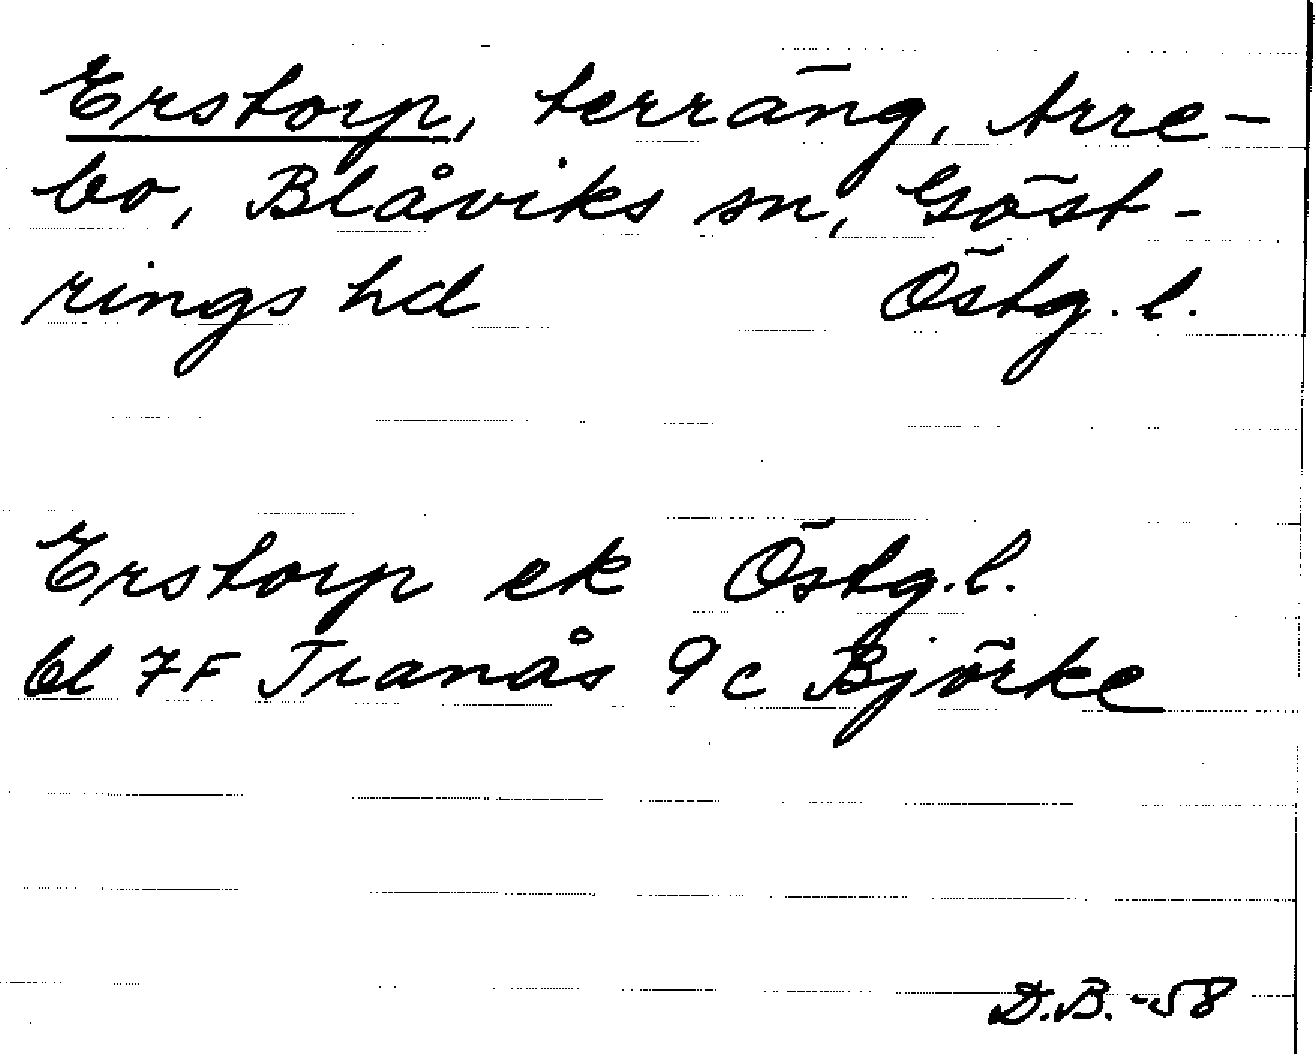 Erstorp, terräng, Arre-
bo, Blåviks sn, Göst-
rings hd Östg. l.
Erstorp ek Östg. l.
bl 7F Tranås 9c Björke
D.B. -58